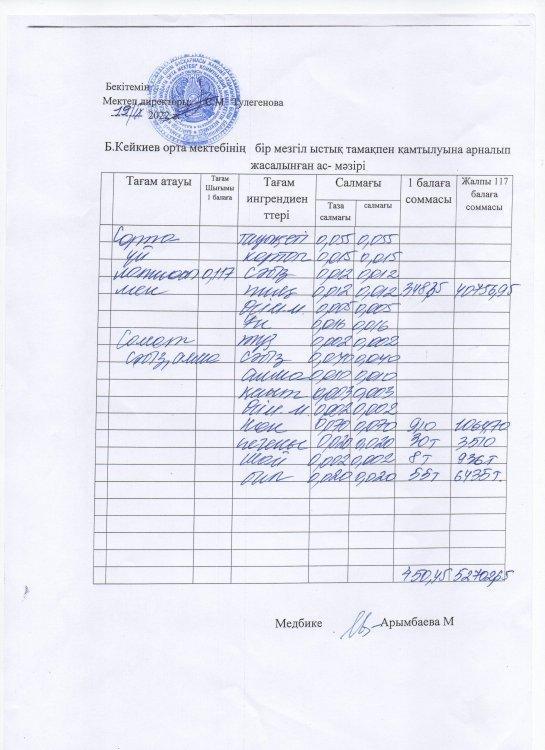 Бекітемін
Мектеп директоры: С.М. Тулегенова
2022
Б.Кейкиев орта мектебінің бір мезгіл ыстық тамақпен қамтылуына арналып
жасалынған ас- мәзірі
Тағам атауы Тағам Шығымы 1 балаға Тағам ингрендиенттері Салмағы 1 балаға соммасы Жалпы 117 балаға соммасы
Таза салмағы салмағы
Сорпа 0,055 0,055
үй картоп 0,015 0,015
0,117 сәбіз 0,012 0,012
мен пияз 0,012 0,012 348,35 40756,95
0,005 0,005
Ұн 0,016 0,016
Салат тұз 0,002 0,002
сәбіз, алма сәбіз 0,040 0,040
алма 0,010 0,010
қант 0,003 0,003
0,002 0,002
нан 0,070 0,070 9,10 1064,70
печенье 0,020 0,020 30т 3510
шай 0,002 0,002 8т 936т
0,020 0,020 55т 6435т.
450,45 52702,65
Медбике Арымбаева М